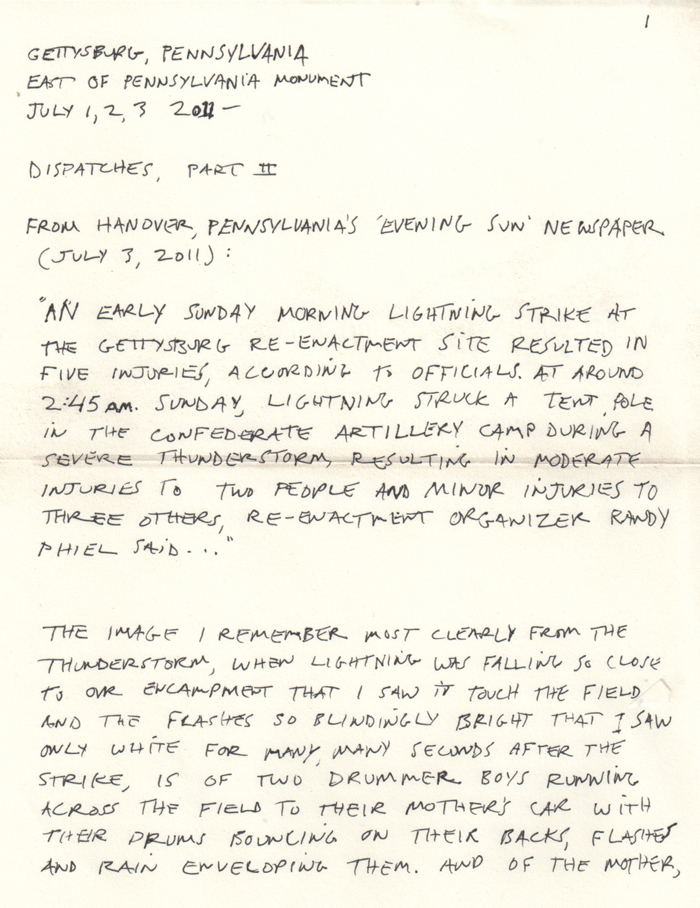 1
GETTYSBURG, PENNSYLVANIA
EAST OF PENNSYLVANIA MONUMENT
JULY 1, 2, 3 2011 —
DISPATCHES, PART II
FROM HANOVER, PENNSYLVANIA'S 'EVENING SUN' NEWSPAPER
(JULY 3, 2011):
"AN EARLY SUNDAY MORNING LIGHTNING STRIKE AT
THE GETTYSBURG RE-ENACTMENT SITE RESULTED IN
FIVE INJURIES, ACCORDING TO OFFICIALS. AT AROUND
2:45 am. SUNDAY, LIGHTNING STRUCK A TENT POLE
IN THE CONFEDERATE ARTILLERY CAMP DURING A
SEVERE THUNDERSTORM, RESULTING IN MODERATE
INJURIES TO TWO PEOPLE AND MINOR INJURIES TO
THREE OTHERS, RE-ENACTMENT ORGANIZER RANDY
PHIEL SAID..."
THE IMAGE I REMEMBER MOST CLEARLY FROM THE
THUNDERSTORM, WHEN LIGHTNING WAS FALLING SO CLOSE
TO OUR ENCAMPMENT THAT I SAW IT TOUCH THE FIELD
AND THE FLASHES SO BLINDINGLY BRIGHT THAT I SAW
ONLY WHITE FOR MANY, MANY SECONDS AFTER THE
STRIKE, IS OF TWO DRUMMER BOYS RUNNING
ACROSS THE FIELD TO THEIR MOTHER'S CAR WITH
THEIR DRUMS BOUNCING ON THEIR BACKS, FLASHES
AND RAIN ENVELOPING THEM. AND OF THE MOTHER,